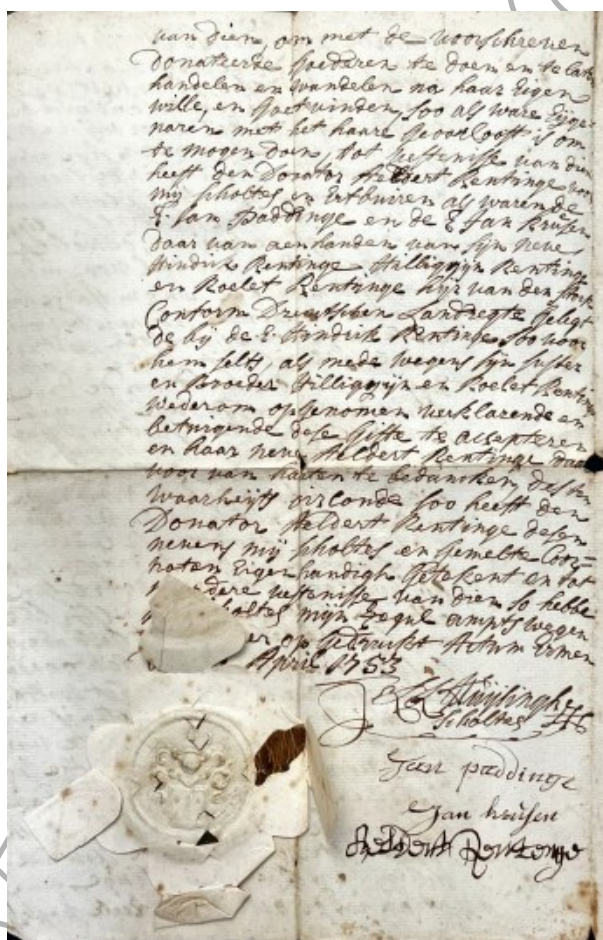 van dien, om met de voorschreven
Donateerde goederen te doen en te laten
handelen en wandelen na haar Eigen
wille, en goetvinden, soo als ware Eijge-
naren met het haare geoorlooft is om
te mogen doen, tot vestenisse van dien
heeft den Donator Heldert Rentinge voor
mij Scholtes en Etbuiren als waren de
E. Jan Paddinge en de E Jan Krusen
daar van aenhanden van sijn neve
Hindrik Rentinge Hilligijn Rentinge
en Roelef Rentinge hijr van den
Conform Drentschen Landregte gelegt
de bij de E. Hindrik Rentinge soo voor
hem self, als mede wegens sijn suster
en broeder Hilligijn en Roelef Rentinge
wederom opgenomen verklarende en
betuigende dese gifte te accepteren
en haar neve Heldert Rentinge daar
voor van harten te bedancken, des ten
waarheijts oirconde soo heeft den
Donator Heldert Rentinge desen
nevens mij Scholtes en gemelte Coor-
noten Eigenhandigh getekent en tot
vestenisse van dien so hebbe
mijn Zegul ampts wegen
er op gedruckt Actum Emen
April 1753
Huijsingh
Scholtes
Jan paddinge
Jan krusen
Heldert Rentenge